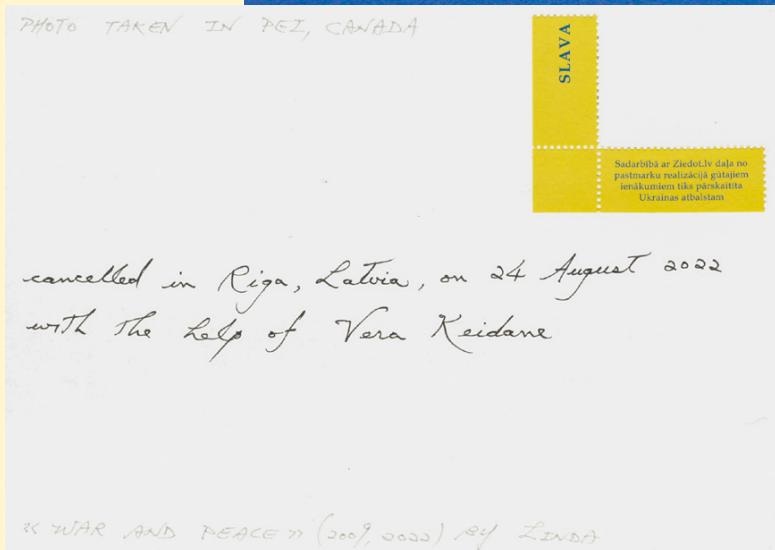 PHOTO TAKEN IN PEI, CANADA
SLAVA
Sadarbībā ar Ziedot.lv daļa no
pastmarku realizācijā gūtajiem
ienākumiem tiks pārskaitīta
Ukrainas atbalstam
cancelled in Riga, Latvia, on 24 August 2022
with the help of Vera Keidane
« WAR AND PEACE » (2009, 2022) BY LINDA